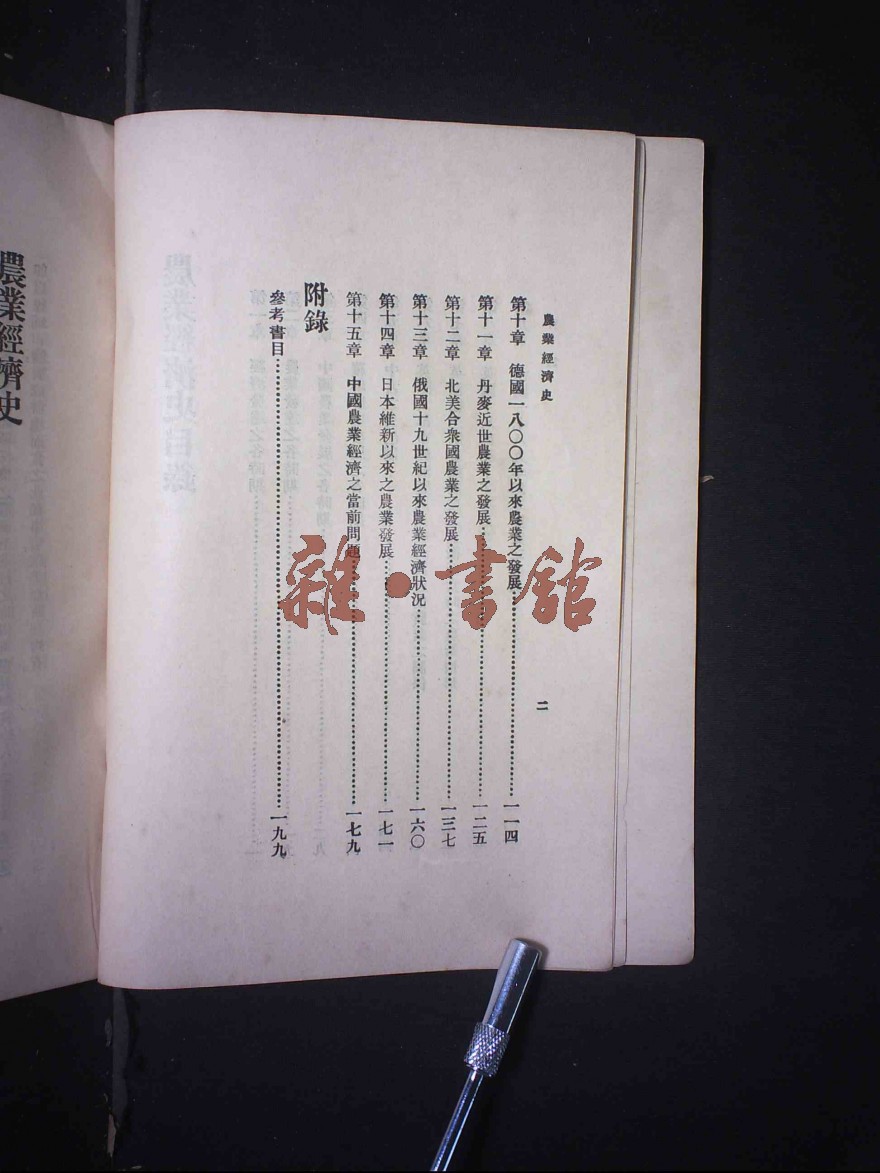 農業經濟史
二
第十章 德國一八〇〇年以來農業之發展…………一一四
第十一章 丹麥近世農業之發展…………一二五
第十二章 北美合衆國農業之發展…………一三七
第十三章 俄國十九世紀以來農業經濟狀况…………一六〇
第十四章 日本維新以來之農業發展…………一七一
第十五章 中國農業經濟之當前問題…………一七九
附錄
參考書目…………一九九
農業經濟史
雜·書館